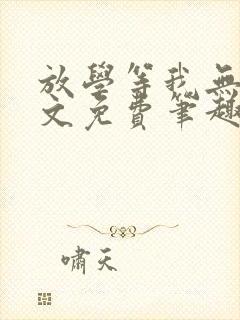 放學等我無
文免費筆趣
嘯天